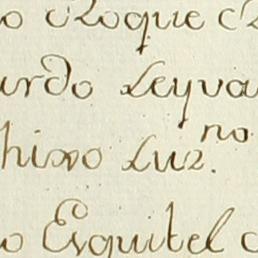 o Roque
urdo Leyva
hixo Luz.no
o Esquitel